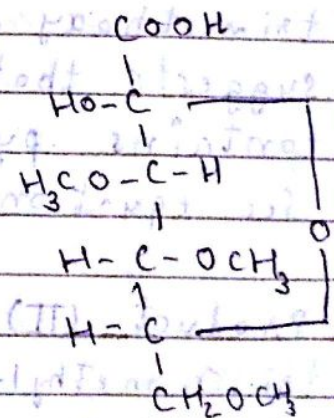 COOH
HO-C
H3CO-C-H
O
H-C-OCH3
H-C
CH2OCH3